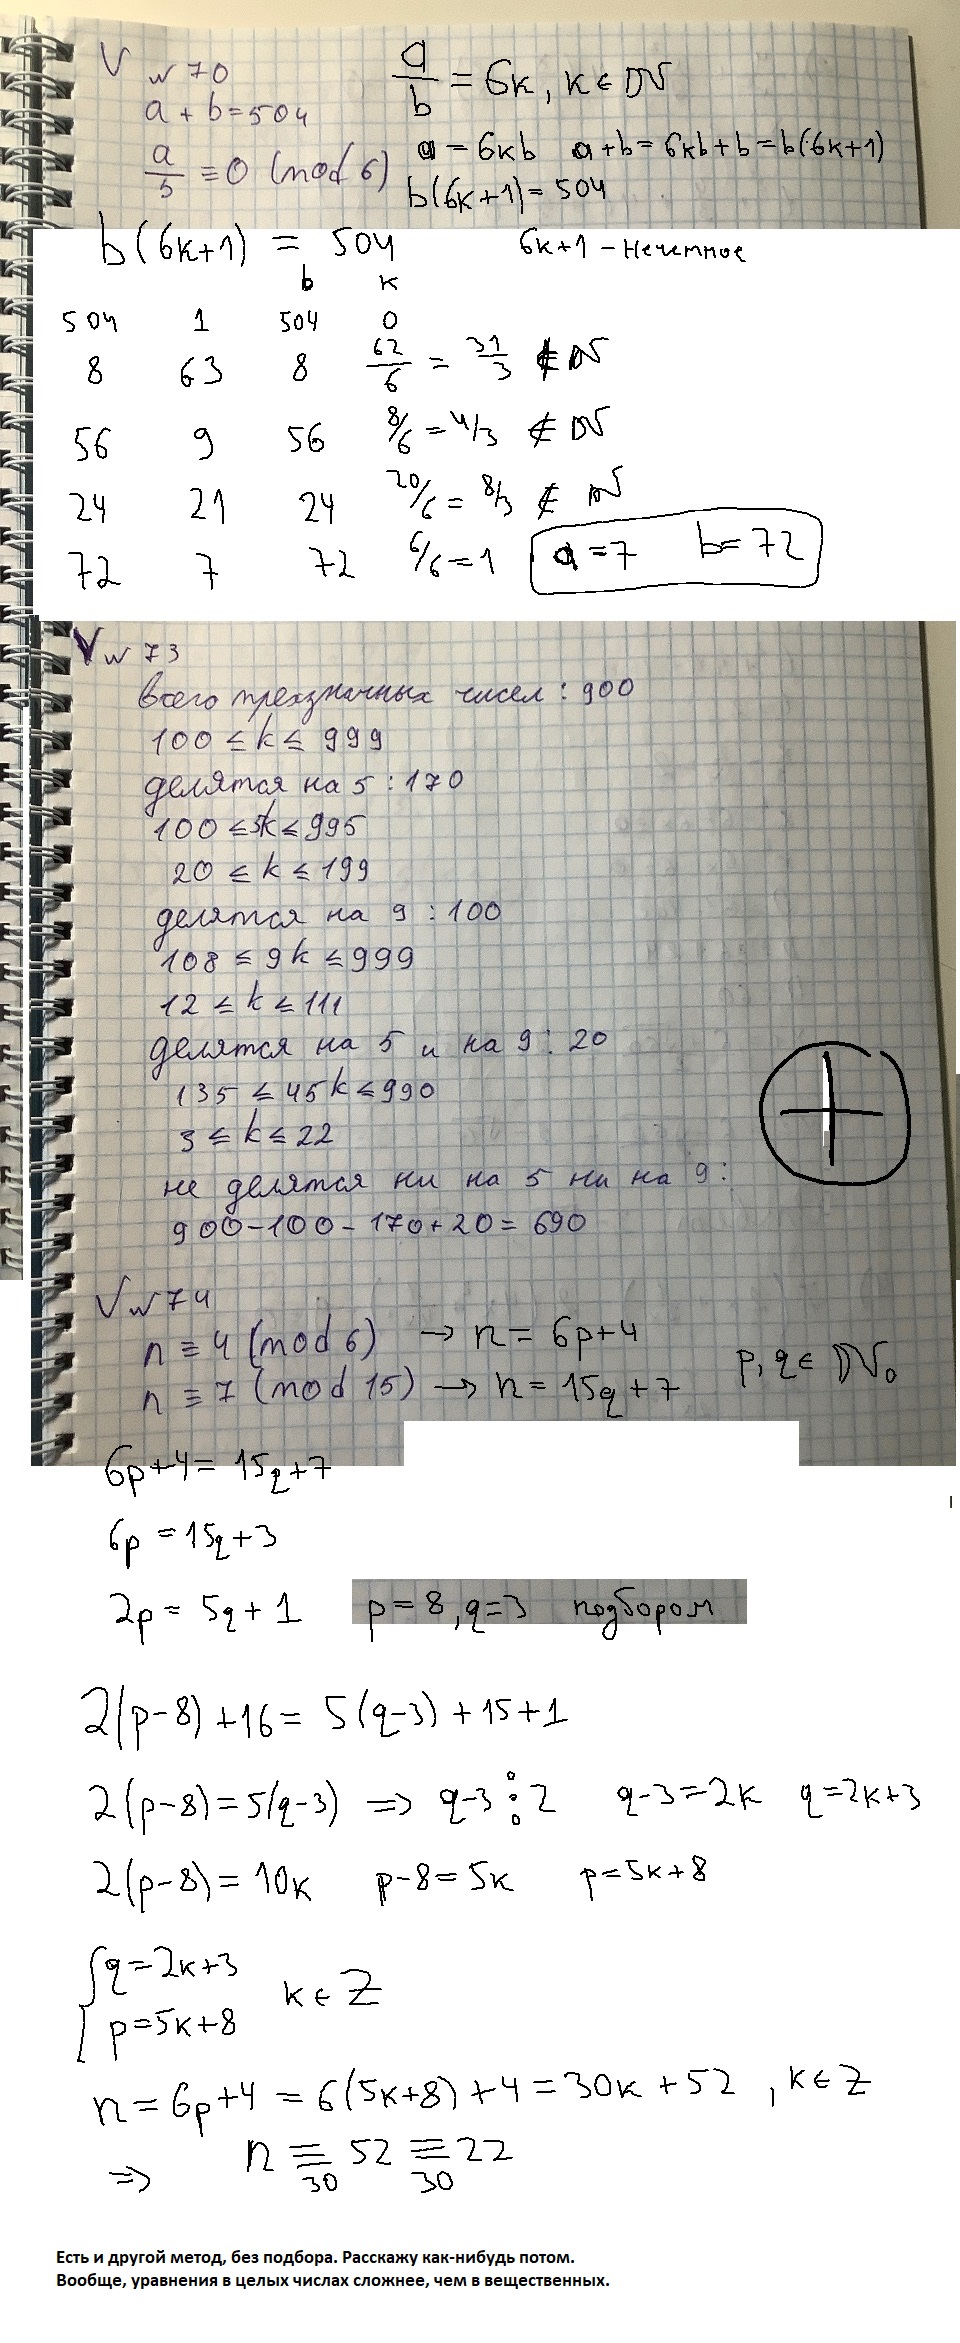 V № 70
a + b = 504
a/b ≡ 0 (mod 6)
a/b = 6k, k ∈ ℕ
a = 6kb a+b = 6kb+b = b(6k+1)
b(6k+1) = 504
b(6k+1) = 504 6k+1 – нечетное
b k
504 1 504 0
8 63 8 62/6 = 31/3 ∉ ℕ
56 9 56 8/6 = 4/3 ∉ ℕ
24 21 24 20/6 = 8/3 ∉ ℕ
72 7 72 6/6 = 1 a = 7 b = 72
V № 73
всего трехзначных чисел : 900
100 ≤ k ≤ 999
делятся на 5 : 170
100 ≤ 5k ≤ 995
20 ≤ k ≤ 199
делятся на 9 : 100
108 ≤ 9k ≤ 999
12 ≤ k ≤ 111
делятся на 5 и на 9 : 20
135 ≤ 45k ≤ 990
3 ≤ k ≤ 22
не делятся ни на 5 ни на 9 :
900 – 100 – 170 + 20 = 690
V № 74
n ≡ 4 (mod 6) → n = 6p+4
n ≡ 7 (mod 15) → n = 15q+7
p, q ∈ ℕ₀
6p+4 = 15q+7
6p = 15q+3
2p = 5q+1 p = 8, q = 3 подбором
2(p–8)+16 = 5(q–3)+15+1
2(p–8) = 5(q–3) ⇒ q–3 ⋮ 2 q–3 = 2k q = 2k+3
2(p–8) = 10k p–8 = 5k p = 5k+8
{ q = 2k+3
p = 5k+8
k ∈ Z
n = 6p+4 = 6(5k+8)+4 = 30k+52 , k ∈ Z
⇒ n ≡₃₀ 52 ≡₃₀ 22
Есть и другой метод, без подбора. Расскажу как-нибудь потом.
Вообще, уравнения в целых числах сложнее, чем в вещественных.